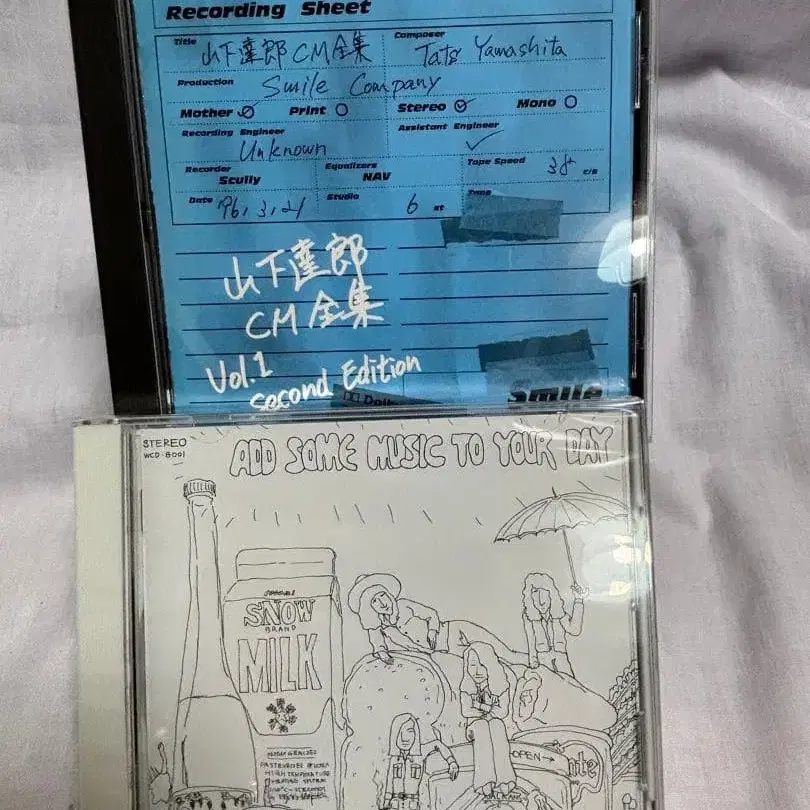 Recording Sheet
Title 山下達郎 CM全集 Composer Tats Yamashita
Production Smile Company
Mother Print Stereo Mono
Recording Engineer Unknown Assistant Engineer
Recorder Scully Equalizers NAV Tape Speed 38+ C/S
Date '96, 3, 21 Studio 6 st
山下達郎
CM全集
Vol.1
Second Edition
Smile
STEREO
WCD-8001
ADD SOME MUSIC TO YOUR DAY
SNOW
BRAND
MILK
HOMOGENIZED
OPEN→